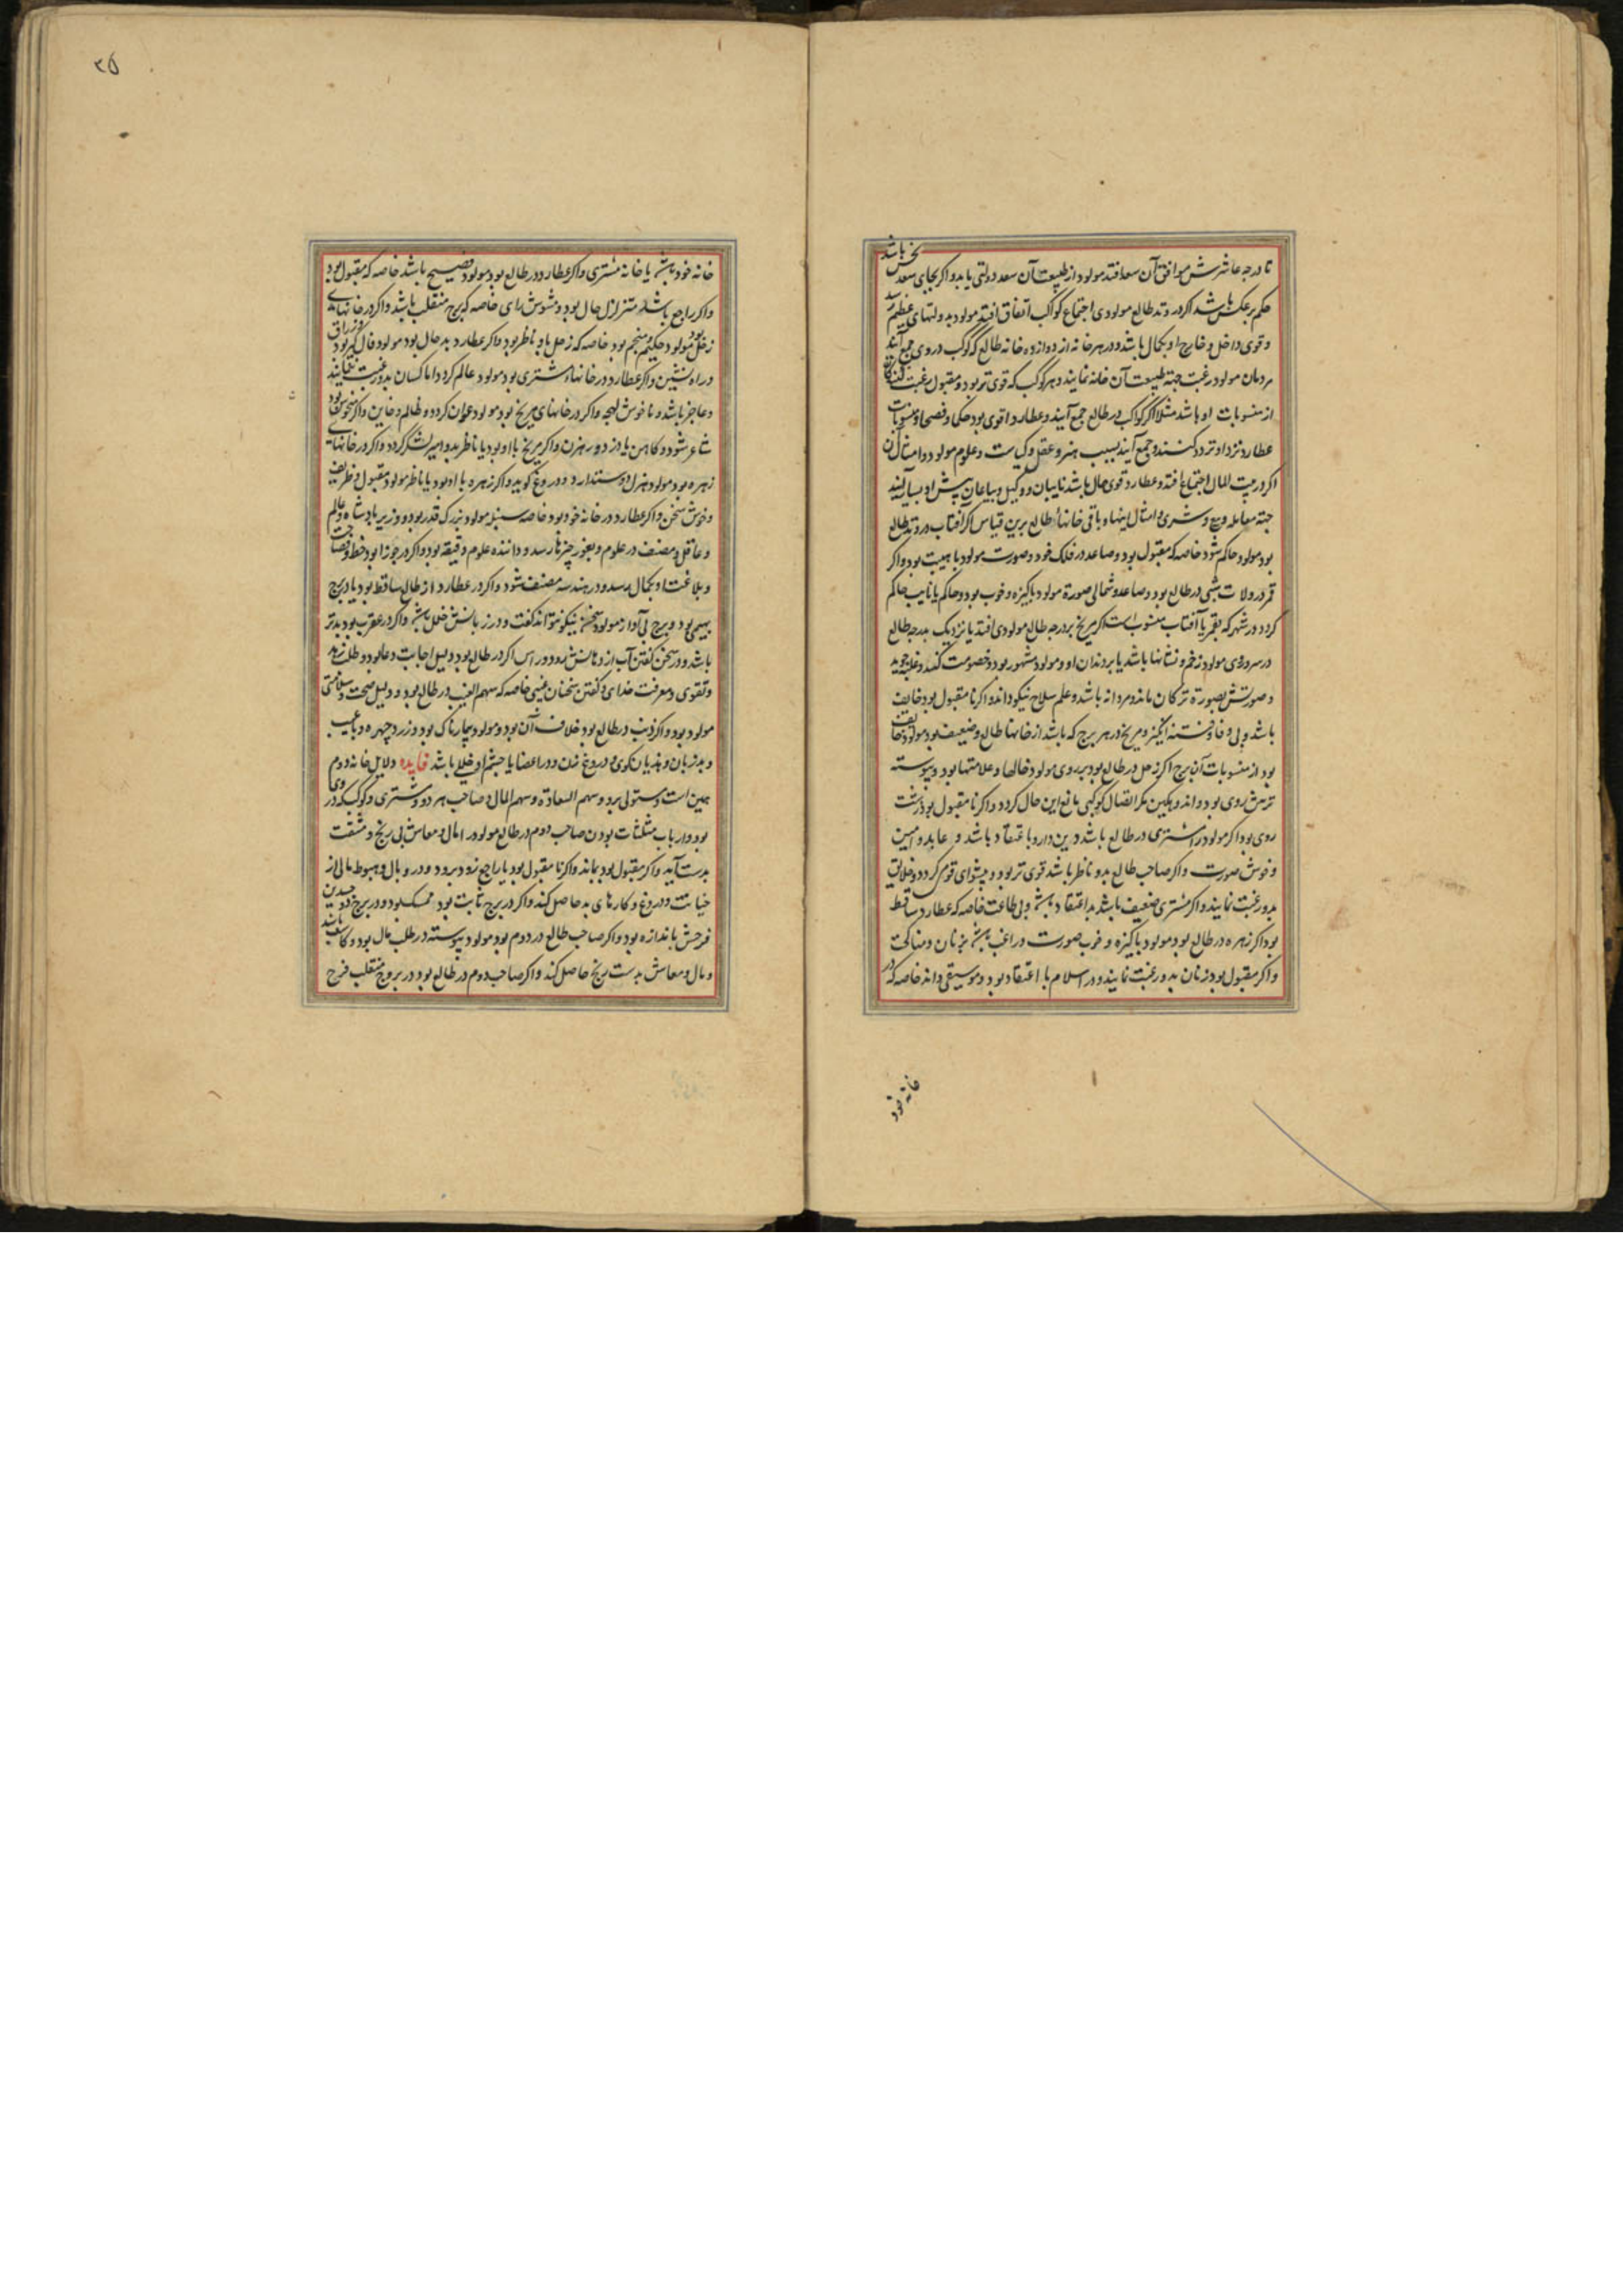 تا درجه عاشرش موافق آن سعد افتد مولود از طبیعت آن سعد دولتی یابد و اگر بجای سعد نحس باشد
حکم بر عکس باشد اگر در وتد طالع مولودی اجتماع کواکب اتفاق افتد مولود بدولتهای عظیم رسد
و قوی داخل و خارج او بکمال باشد و در هر خانه از دوازده خانه طالع که کوکب در وی جمع آیند
مردمان مولود رغبت جهة طبیعت آن خانه نمایند و هر کوکب که قوی تر بود و مقبول رغبت کنندکان
از منسوبات او باشد مثلا اگر کواکب در طالع جمع آیند و عطارد اقوی بود حکما و فصحا و منسوبات
عطارد نزد او تردد کنند و جمع آیند بسبب هنر و عقل و کیاست و علوم مولود و امثال آن
اگر در بیت المال اجتماع افتد و عطارد قوی حال باشد نایبان و وکیل و بیاعان پیش او بسیار آیند
جهة معامله و بیع و شری و امثال اینها و باقی خانهاء طالع برین قیاس اگر آفتاب در وتد طالع
بود مولود حاکم شود خاصه که مقبول بود و صاعد در فلک خود و صورت مولود با هیبت بود و اگر
قمر در ولادت شبی در طالع بود و صاعد و شمالی صورة مولود پاکیزه و خوب بود و حاکم یا نایب حاکم
کردد در شهر که بقمر یا آفتاب منسوب است اگر مریخ بر درجه طالع مولودی افتد یا نزدیک بدرجه طالع
در سر و روی مولود زخم و نشانها باشد یا بر دندان او و مولود مشهور بود و خصومت کند و غلبه جوید
و صورتش بصورة ترکان ماند و مردانه باشد و علم سلاح نیکو داند و اگر نا مقبول بود خایف
باشد و بی وفا و فتنه انگیز و مریخ در هر برج که باشد از خانها طالع و ضعیف بود مولود خایف
بود از منسوبات آن برج اگر زحل در طالع بود بر روی مولود خالها و علامتها بود و پیوسته
ترش روی بود و اندوهکین مگر اتصال کوکبی مانع این حال کردد و اگر نا مقبول بود زشت
روی بود اگر مولود را مشتری در طالع باشد دین دار و با اعتقاد باشد و عابد و امین
و خوش صورت و اگر صاحب طالع بدو ناظر باشد قوی تر بود و پیشوای قوم کردد و خلایق
بدو رغبت نمایند و اگر مشتری ضعیف باشد بد اعتقاد باشد و بی طاعت خاصه که عطارد ساقط
بود اگر زهره در طالع بود مولود پاکیزه و خوب صورت و راغب باشد بزنان و مناکحت
و اگر مقبول بود زنان بدو رغبت نمایند و در اسلام با اعتقاد بود و موسیقی داند خاصه که در
خانه خود
۲۵
خانه خود باشد یا خانه مشتری و اگر عطارد در طالع بود مولود فصیح باشد خاصه که مقبول بود
و اگر راجع باشد متزلزل حال بود و مشوش رای خاصه که برج منقلب باشد و اگر در خانهای
زحل بود مولود حکیم و منجم بود خاصه که زحل باو ناظر بود و اگر عطارد بد حال بود مولود فال کیر بود و زراق
و راه نشین و اگر عطارد در خانهاء مشتری بود مولود عالم کردد اما کسان بدو رغبت ننمایند
و عاجز باشد و نا خوش لهجه و اگر در خانهای مریخ بود مولود عوان کردد و ظالم و خاین و اگر منحوس بود
شاعر شود و کاهن یا دزد و رهزن و اگر مریخ با او بود یا ناظر بدو امیر لشکر کردد و اگر در خانهای
زهره بود مولود هزل دوست دارد و دروغ کوید و اگر زهره با او بود یا ناظر مولود مقبول و ظریف
و خوش سخن و اگر عطارد در خانه خود بود خاصه سنبله مولود بزرک قدر بود و وزیر پادشاه و عالم
و عاقل و مصنف در علوم و بغور چیزها رسد و داننده علوم دقیقه بود و اگر در جوزا بود خط و فصاحت
و بلاغت او بکمال رسد و در هندسه مصنف شود و اگر در عطارد از طالع ساقط بود یا در برج
بهیمی بود و برج بی آواز مولود سخن نیکو نتواند کفت و در زبانش خلل باشد و اگر در عقرب بود بدتر
باشد و در سخن کفتن آب از دهانش رود و راس اگر در طالع بود دلیل اجابت دعا بود و طلب زهد
و تقوی و معرفت خدای و کفتن سخنان غیبی خاصه که سهم الغیب در طالع بود و دلیل صحت و سلامتی
مولود بود و اگر ذنب در طالع بود خلاف آن بود و مولود بیمارناک بود و زرد چهره و با عیب
و بد زبان و هذیان کوی و دروغ زن و در اعضا یا چشم او خللی باشد فایده دلایل خانه دوم
همین است و مستولی برو و سهم السعادة و سهم المال و صاحب هر دو و مشتری و کوکب که در وی
بود و ارباب مثلثات بودن صاحب دوم در طالع مولود را مال و معاش بی رنج و مشقت
بدست آید و اگر مقبول بود بماند و اگر نا مقبول بود یا راجع زود برود و در وبال و هبوط مالی از
خیانت و دروغ و کارهای بد حاصل کند و اگر در برج ثابت بود ممسک بود و در برج ذو جسدین
خرجش باندازه بود و اگر صاحب طالع در دوم بود مولود پیوسته در طلب مال بود و کاسب باشد
و مال و معاش بدست برنج حاصل کند و اگر صاحب دوم در طالع بود در بروج منقلب فرح